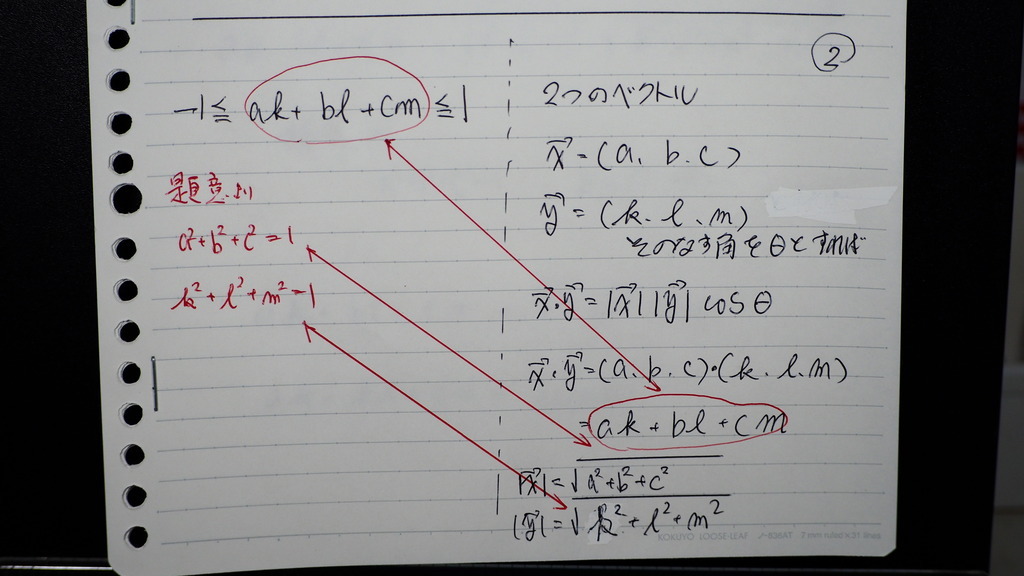 ②
-1 ≦ ak + bl + cm ≦ 1
題意より
a²+b²+c²=1
k²+l²+m²=1
2つのベクトル
x⃗=(a. b. c)
y⃗=(k. l. m)
そのなす角をθとすれば
x⃗・y⃗=|x⃗||y⃗| cosθ
x⃗・y⃗=(a. b. c)・(k. l. m)
=ak+bl+cm
|x⃗|=√a²+b²+c²
|y⃗|=√k²+l²+m²
KOKUYO LOOSE-LEAF ノ-836AT 7 mm ruled×31 lines